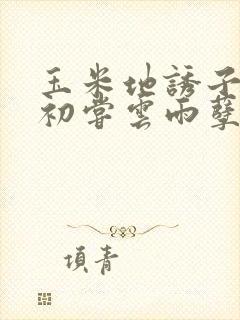 玉米地誘子
初嘗雲雨孽
項青